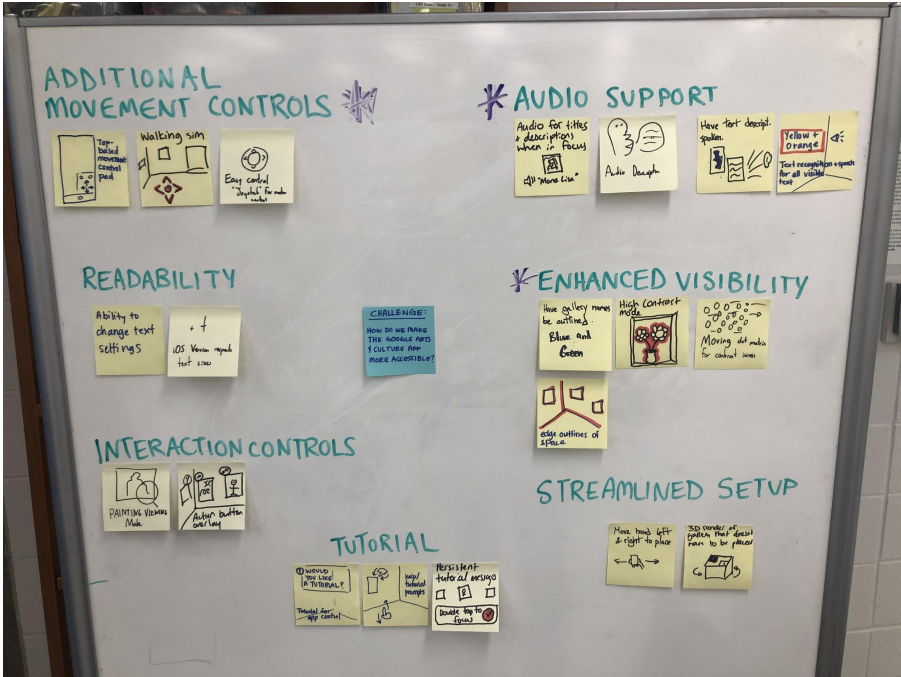 ADDITIONAL
MOVEMENT CONTROLS
Tap-
based
movement
control
pad
Walking sim
Easy control
"Joystick" for
AUDIO SUPPORT
Audio for titles
& descriptions
when in focus
"Mona Lisa"
Audio
Have text descript.
spoken.
Yellow +
Orange
Text recognition + speech
for all visible
text
READABILITY
Ability to
change text
settings
iOS Version
text sizes
CHALLENGE:
HOW DO WE MAKE
THE GOOGLE ARTS
& CULTURE APP
MORE ACCESSIBLE?
ENHANCED VISIBILITY
Have gallery names
be outlined.
Blue and
Green
High Contrast
mode
Moving dot matrix
for contrast
edge outlines of
space
INTERACTION CONTROLS
PAINTING VIEWING
Mode
Action button
overlay
STREAMLINED SETUP
Move hand left
& right to place
3D render of
gallery that doesn't
have to be placed
TUTORIAL
WOULD
YOU LIKE
A TUTORIAL?
Tutorial for
app control
help/
tutorial
prompts
Persistent
tutorial messages
Double tap to
focus